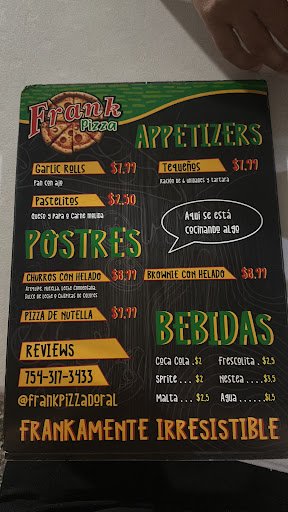 Frank
Pizza
APPETIZERS
Garlic Rolls $7,99
Pan con ajo
Tequeños $7,99
Ración de 6 unidades y tartara
Pastelitos $2,50
Queso y Papa o Carne Molida
Aquí se está
cocinando algo
POSTRES
CHURROS CON HELADO $8,99
Arequipe, Nutella, Leche Condensada,
Dulce de Leche o Chispitas de Colores
BROWNIE CON HELADO $8,99
PIZZA DE NUTELLA $9,99
BEBIDAS
REVIEWS
754-317-3433
@frankpizzadoral
Coca Cola . $2
Sprite . . . $2
Malta . . . $2,5
Frescolita . $2,5
Nestea . . . $3,5
Agua . . . . $1,5
FRANKAMENTE IRRESISTIBLE